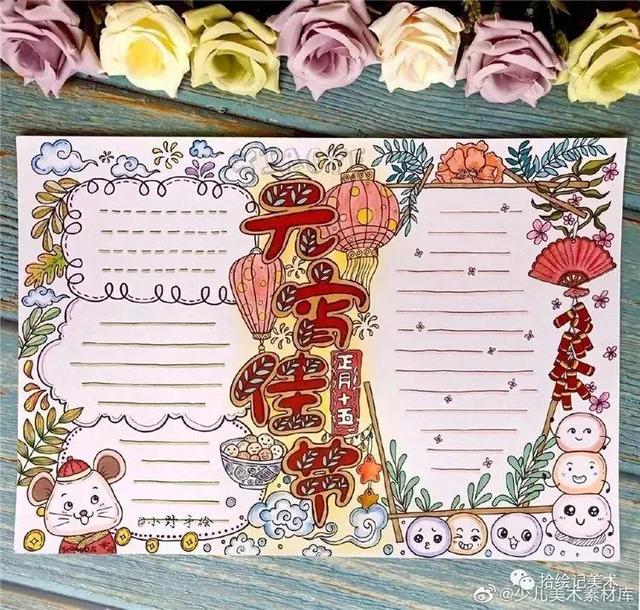 元宵佳节
正月十五
@小野手绘
拾绘记美术
@少儿美术素材库